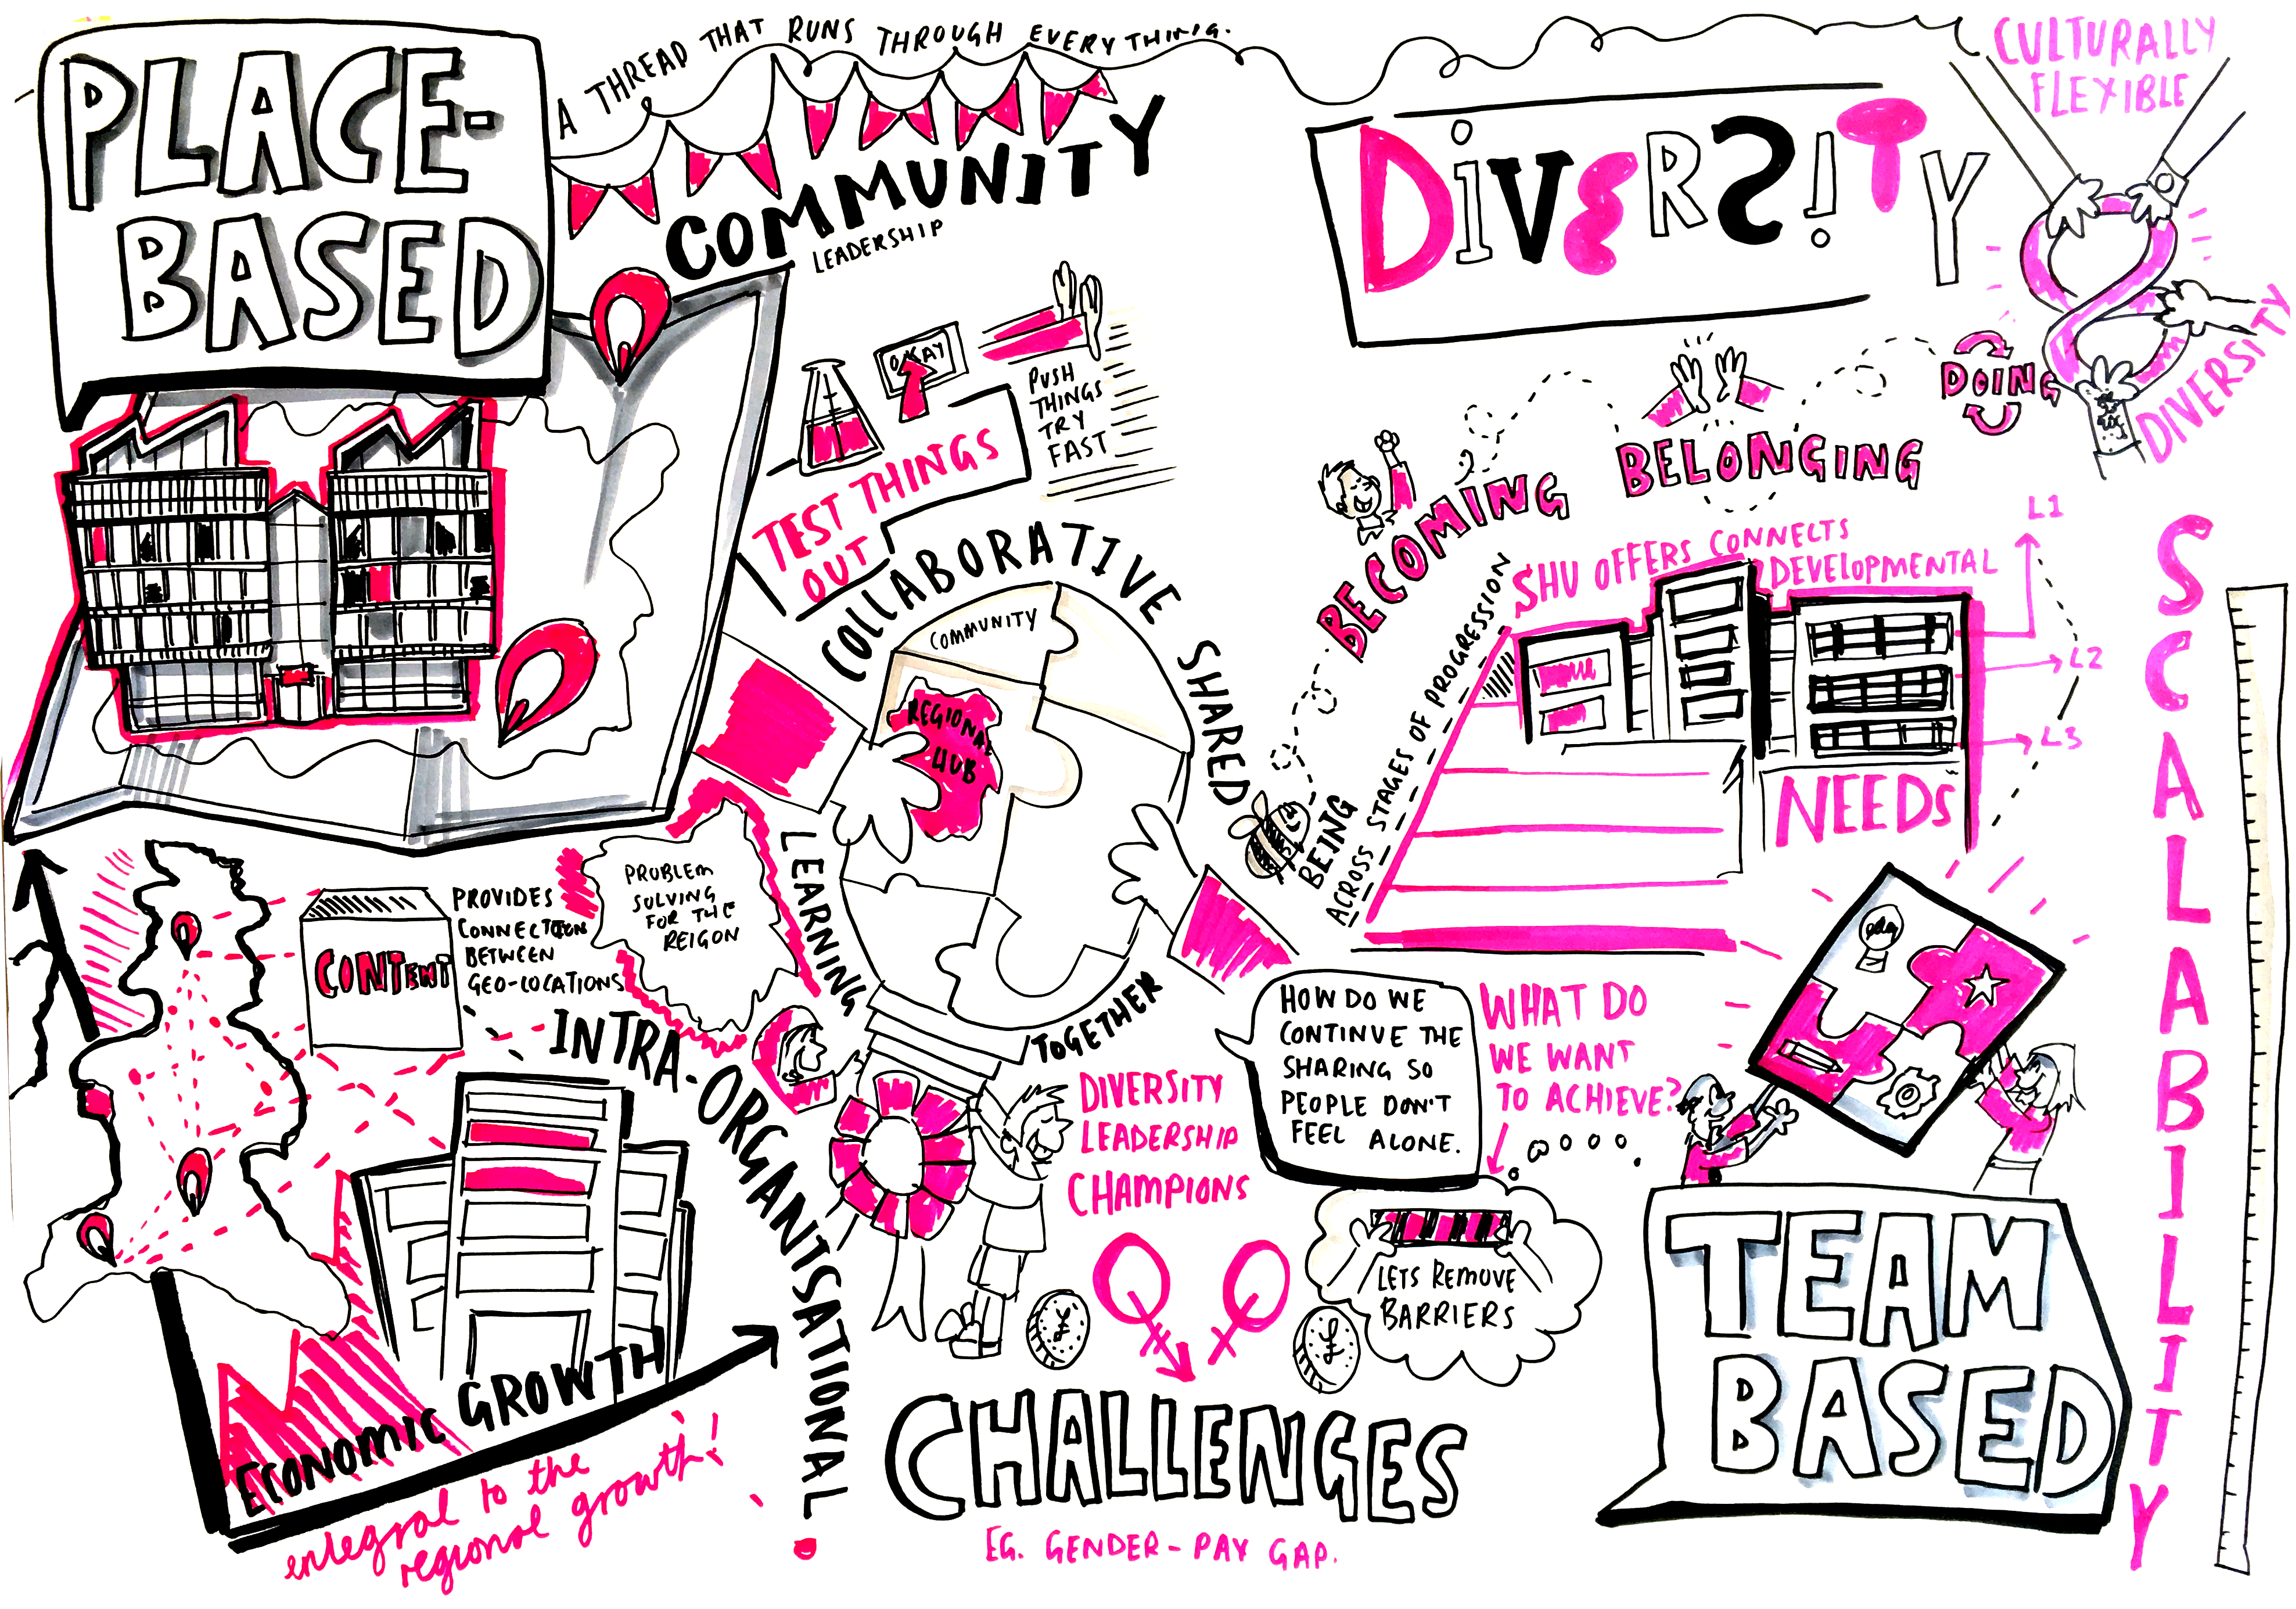 PLACE-
BASED
A THREAD THAT RUNS THROUGH EVERYTHING.
COMMUNITY
LEADERSHIP
DIVERSITY
CULTURALLY
FLEXIBLE
DIVERSITY
DOING
BELONGING
BECOMING
BEING
ACROSS STAGES OF PROGRESSION
OKAY
PUSH
THINGS
TRY
FAST
TEST THINGS
OUT
COLLABORATIVE SHARED
LEARNING
TOGETHER
COMMUNITY
REGIONAL
HUB
SHU OFFERS CONNECTS
DEVELOPMENTAL
NEEDS
L1
L2
L3
SCALABILITY
CONTENT
PROVIDES
CONNECTION
BETWEEN
GEO-LOCATIONS
PROBLEM
SOLVING
FOR THE
REIGON
INTRA-ORGANISATIONAL
ECONOMIC GROWTH
integral to the
regional growth!
DIVERSITY
LEADERSHIP
CHAMPIONS
HOW DO WE
CONTINUE THE
SHARING SO
PEOPLE DON'T
FEEL ALONE.
WHAT DO
WE WANT
TO ACHIEVE?
LETS REMOVE
BARRIERS
¥
£
CHALLENGES
EG. GENDER-PAY GAP.
TEAM
BASED